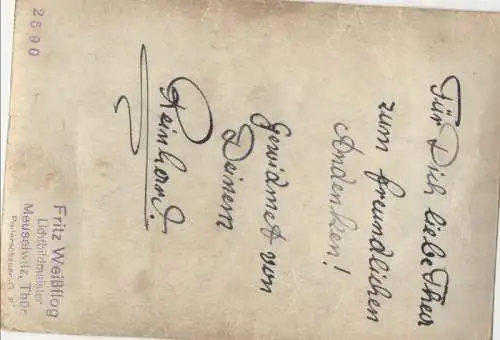 Für Dich liebe Thea
zum freundlichen
Andenken!
Gewidmet von
Deinem
Reinhard.
Fritz Weißflog
Lichtbildmeister
Meuselwitz, Thür.